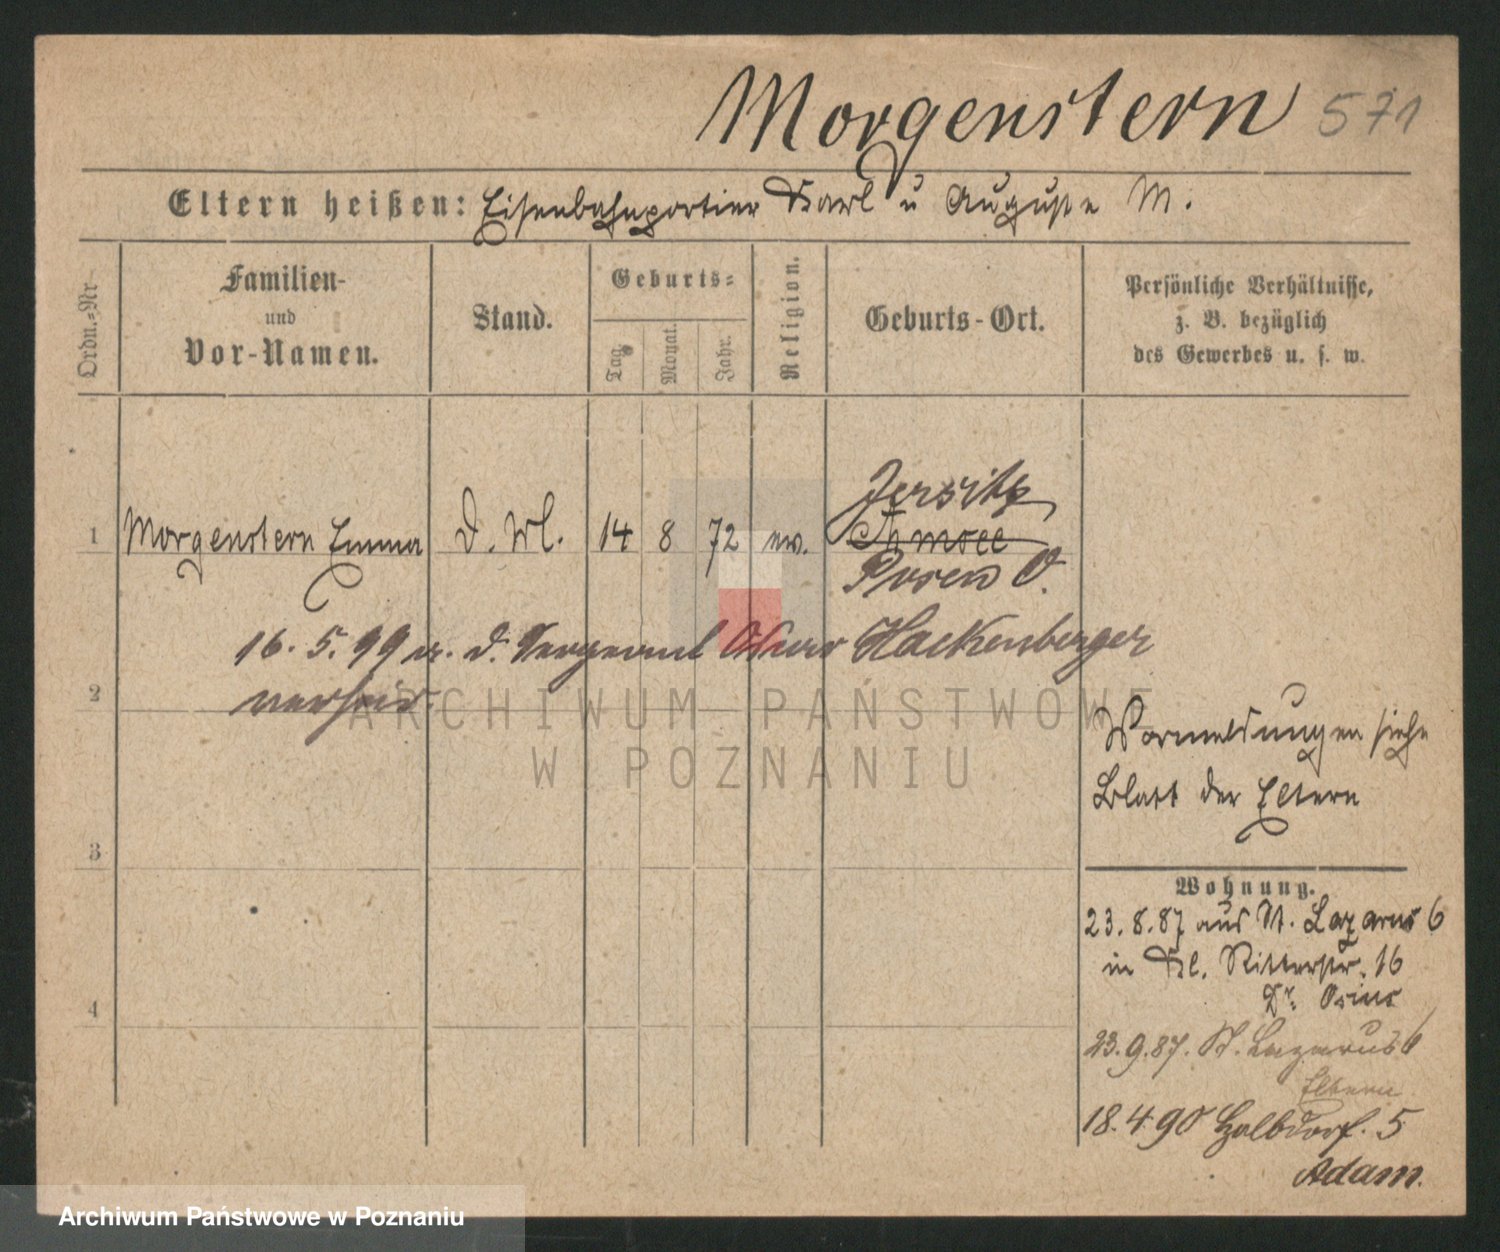 Morgenstern 571
Eltern heißen: Eisenbahnportier Karl u Auguste M.
Ordn.-Nr.
Familien-
und
Vor-Namen.
Stand.
Geburts-
Tag.
Monat.
Jahr.
Religion.
Geburts-Ort.
Persönliche Verhältnisse,
z. B. bezüglich
des Gewerbes u. s. w.
Jersitz
1 Morgenstern Emma d. Wl. 14 8 72 ev.
Posen O.
16. 5. 99 m. d. Sergeant Oskar Hackenberger
2 verheir.
Vormeldungen siehe
Blatt der Eltern
3
Wohnung.
23.8.87 aus St. Lazarus 6
in Kl. Ritterstr. 16
Dr. Osius
4
23.9.87. St. Lazarus 6
Eltern
18.4.90 Halbdorf. 5
Adam.
ARCHIWUM PAŃSTWOWE
W POZNANIU
Archiwum Państwowe w Poznaniu